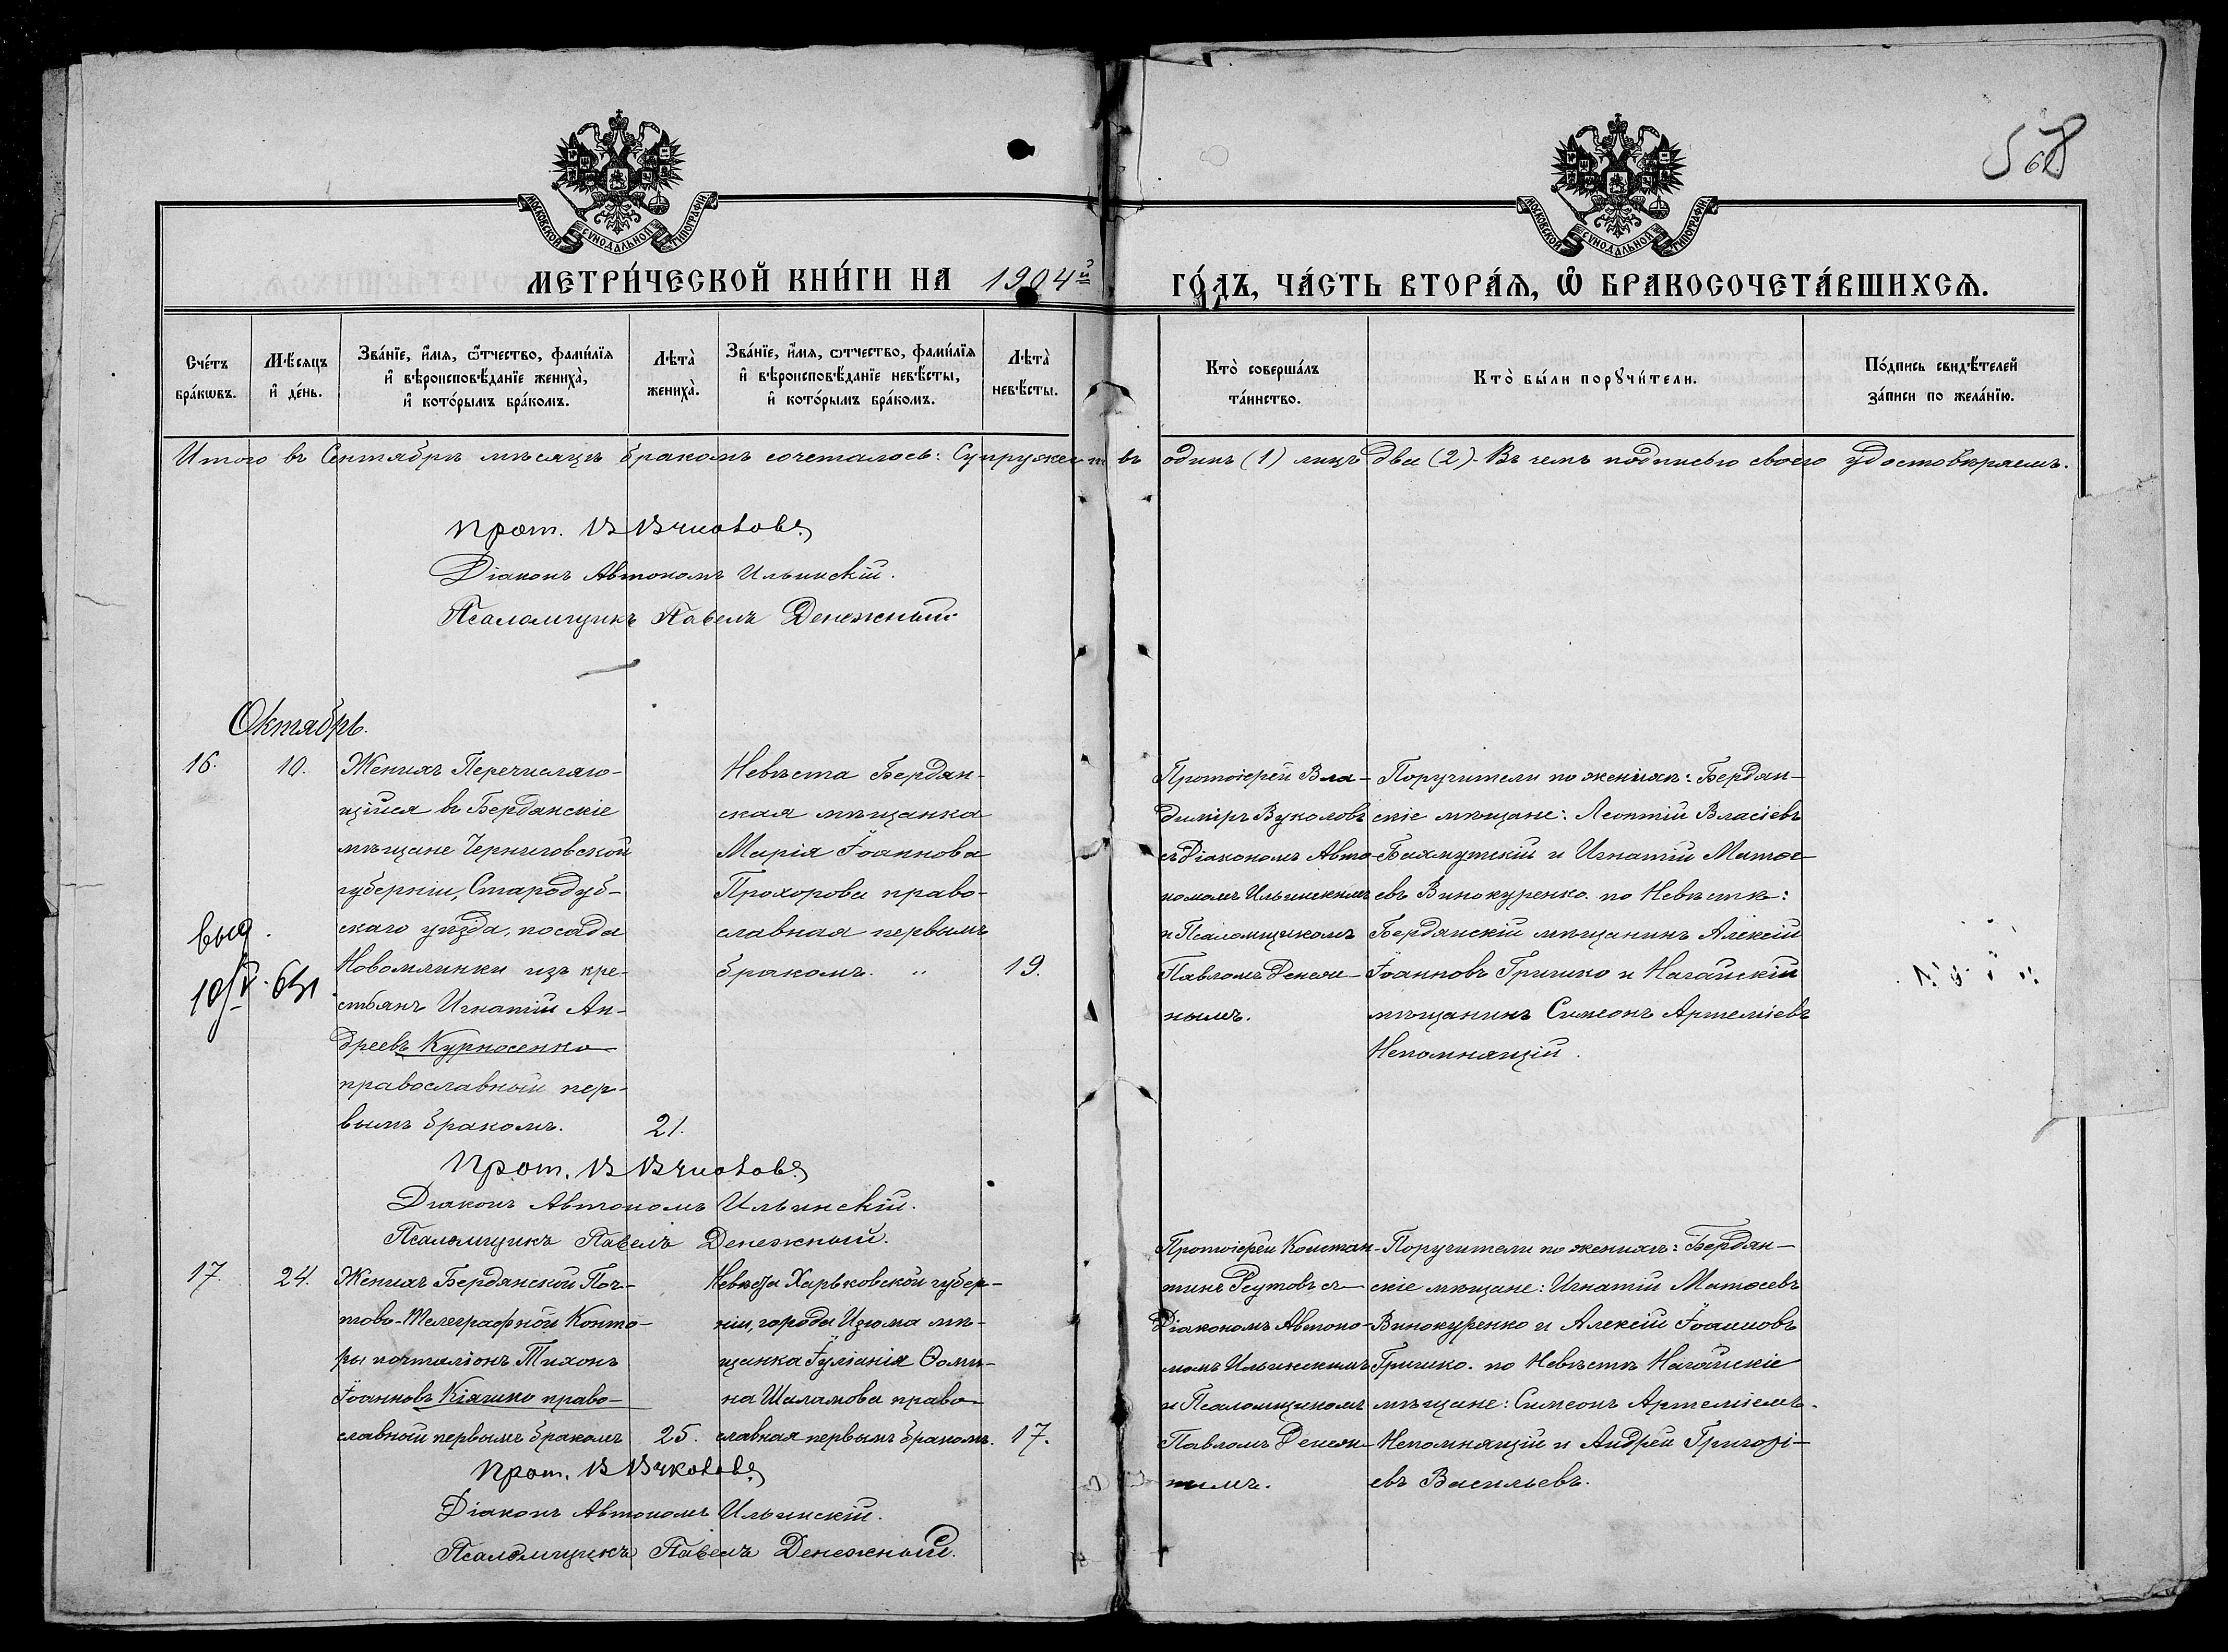 568
МОСКОВСКОЙ СѴНОДАЛЬНОЙ ТИПОГРАФІИ
МОСКОВСКОЙ СѴНОДАЛЬНОЙ ТИПОГРАФІИ
МЕТРИ́ЧЕСКОЙ КНИ́ГИ НА 1904й ГО́ДЪ, ЧА́СТЬ ВТОРА́Ѧ, Ѽ БРАКОСОЧЕТА́ВШИХСѦ.
Сче́тъ бра́кѡвъ.
Мѣ́сяцъ и҆ де́нь.
Зва́нїе, и҆́мя, ѻ҆́тчество, фами́лїя
и҆ вѣроисповѣ́данїе жениха̀,
и҆ кото́рымъ бра́комъ.
Лѣта̀ жениха̀.
Зва́нїе, и҆́мя, ѻ҆́тчество, фами́лїя
и҆ вѣроисповѣ́данїе невѣ́сты,
и҆ кото́рымъ бра́комъ.
Лѣта̀ невѣ́сты.
Кто̀ соверша́лъ
та́инство.
Кто̀ бы́ли порꙋчи́тели.
По́дпись свидѣ́телей
за́писи по жела́нїю.
Итого въ Сентябрѣ мѣсяцѣ бракомъ сочеталось: Супружествъ одинъ (1) лицъ два (2). Въ чемъ подписью своею удостовѣряемъ.
Прот. В Вуколовъ
Діаконъ Автономъ Ильинскій.
Псаломщикъ Павелъ Денежный
Октябрь.
16.
10.
Женихъ Перечисляю-
щійся въ Бердянскіе
мѣщане Черниговской
губерніи, Стародуб-
скаго уѣзда, посада
Новомлинки изъ кре-
стьянъ Игнатій Ан-
дреевъ Курносенко
православный пер-
вымъ бракомъ.
21.
Невѣста Бердян-
ская мѣщанка
Марія Іоаннова
Прохорова право-
славная первымъ
бракомъ.
19.
Протоіерей Вла-
диміръ Вуколовъ
съ Діакономъ Авто-
номомъ Ильинскимъ
и Псаломщикомъ
Павломъ Денеж-
нымъ.
Поручители по женихѣ: Бердян-
скіе мѣщане: Леонтій Власіевъ
Бахмутскій и Игнатій Матѳе-
евъ Винокуренко. по Невѣстѣ:
Бердянскій мѣщанинъ Алексій
Іоанновъ Гришко и Ногайскій
мѣщанинъ Симеонъ Артеміевъ
Непомнящій.
выд.
10/V
Прот. В Вуколовъ
Діаконъ Автономъ Ильинскій.
Псаломщикъ Павелъ Денежный.
17.
24.
Женихъ Бердянской Поч-
тово-Телеграфной Конто-
ры почталіонъ Тихонъ
Іоанновъ Кіяшко право-
славный первымъ бракомъ
25.
Невѣста Харьковской губер-
ніи, города Изюма мѣ-
щанка Іуліанія Ѳоми-
на Шаламова право-
славная первымъ бракомъ.
17.
Протоіерей Констан-
тинъ Реутовъ съ
Діакономъ Автоно-
момъ Ильинскимъ
и Псаломщикомъ
Павломъ Денеж-
нымъ.
Поручители по женихѣ: Бердян-
скіе мѣщане: Игнатій Матѳеевъ
Винокуренко и Алексій Іоанновъ
Гришко. по Невѣстѣ Ногайскіе
мѣщане: Симеонъ Артеміевъ
Непомнящій и Андрей Григорі-
евъ Васильевъ.
Прот. В Вуколовъ
Діаконъ Автономъ Ильинскій.
Псаломщикъ Павелъ Денежный.